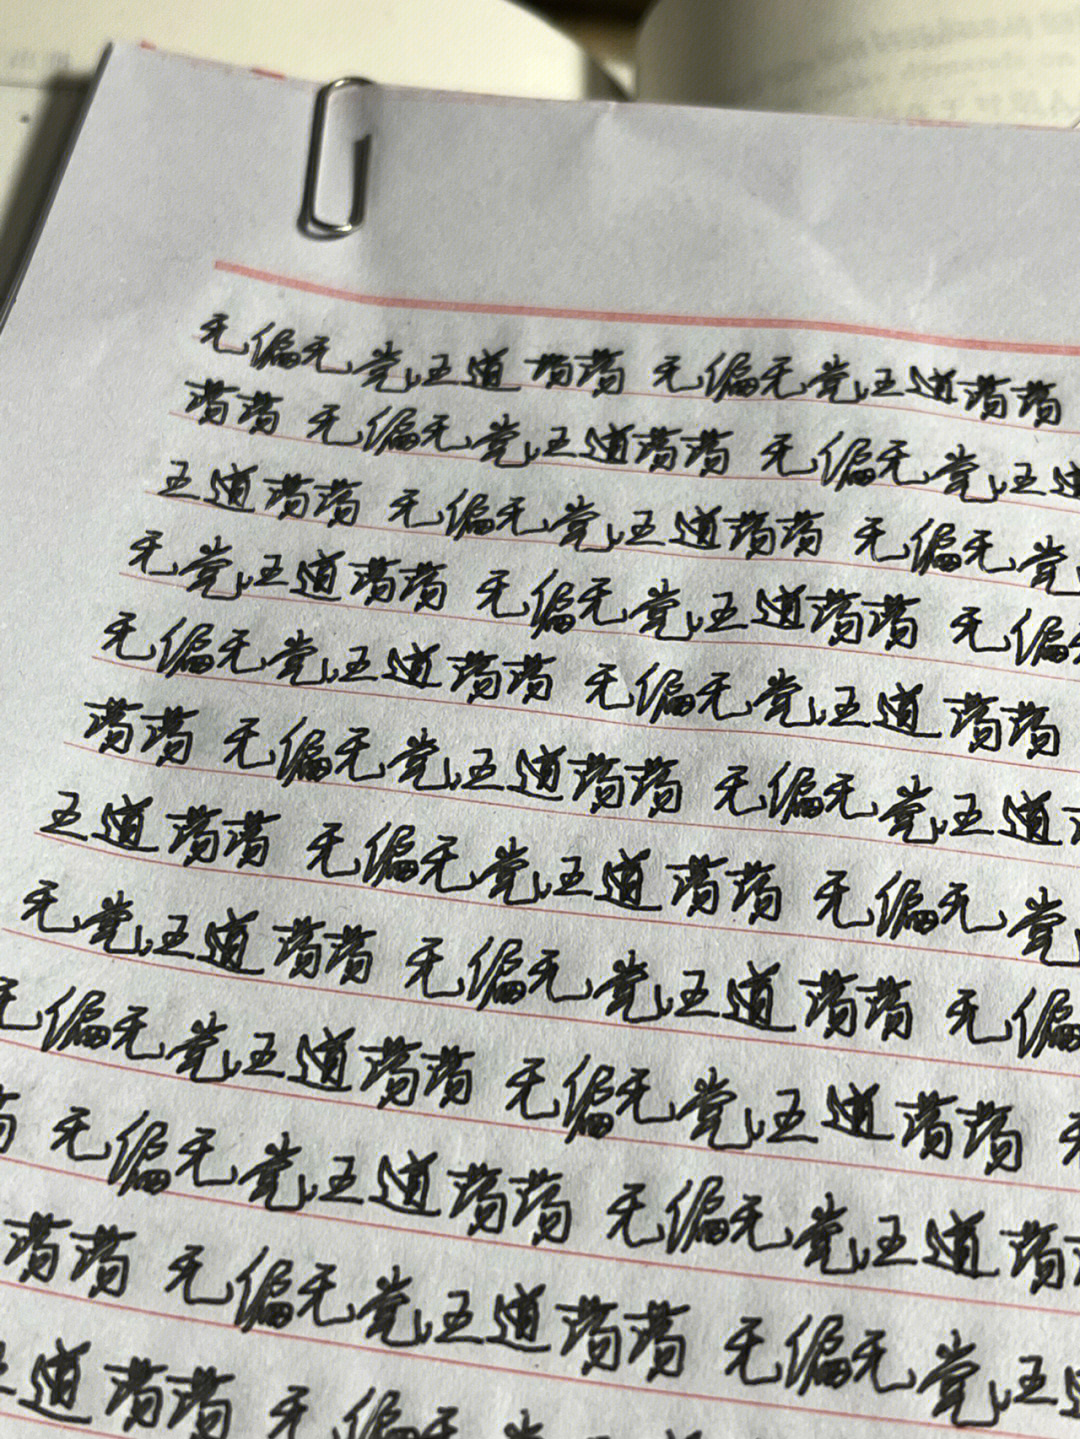 无偏无党,王道荡荡 无偏无党,王道荡荡
荡荡 无偏无党,王道荡荡 无偏无党,王道
王道荡荡 无偏无党,王道荡荡 无偏无党,
无党,王道荡荡 无偏无党,王道荡荡 无偏无
无偏无党,王道荡荡 无偏无党,王道荡荡
荡荡 无偏无党,王道荡荡 无偏无党,王道
王道荡荡 无偏无党,王道荡荡 无偏无党,
无党,王道荡荡 无偏无党,王道荡荡 无偏
无偏无党,王道荡荡 无偏无党,王道荡荡 无
荡 无偏无党,王道荡荡 无偏无党,王道荡荡
荡荡 无偏无党,王道荡荡 无偏无党,王道
王道荡荡 无偏无